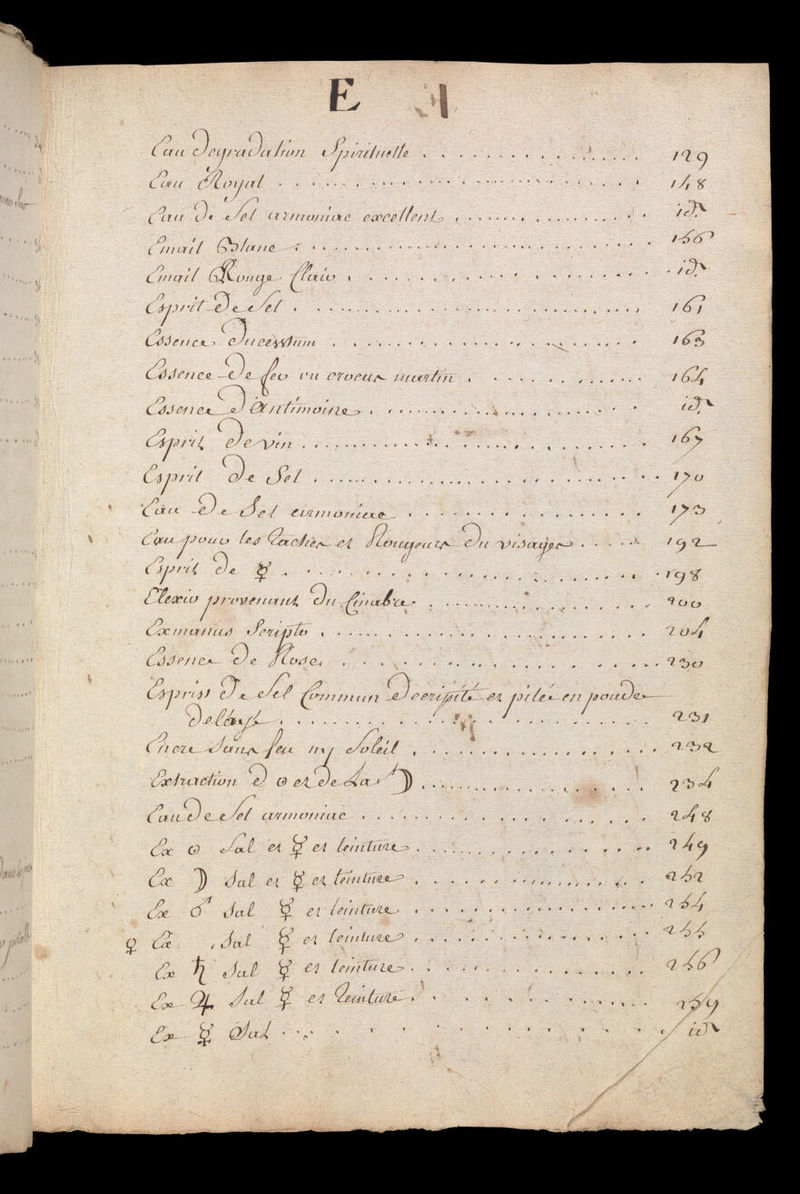 E
Eau Degradation Spirituelle . . . . . . 129
Eau Royal . . . . . . 148
Eau De Sel armoniac excellent . . . . . . id.
Email Blanc . . . . . . 156
Email Rouge Clair . . . . . . id.
Esprit De Sel . . . . . . 161
Essence . . . . . . 163
Essence De feu ou crocus martin . . . . . . 164
Essence D'Antimoine . . . . . . id.
Esprit De vin . . . . . . 167
Esprit De Sel . . . . . . 170
Eau De Sel armoniac . . . . . . 173
Eau pour les Taches et Rougeurs Du visages . . . . . . 192
Esprit De ☿ . . . . . . 198
Elexir provenant Du Cinabre . . . . . . 200
Scripto . . . . . . 204
Essence De Roses . . . . . . 230
Esprit De Sel Commun Decripité et pilée en poudre
. . . . . . 231
Encre Sans feu ny Soleil . . . . . . 232
Extraction D ☉ et De La ☽ . . . . . . 234
Eau De Sel armoniac . . . . . . 248
Ex ☉ Sal et ☿ et teinture . . . . . . 249
Ex ☽ Sal et ☿ et teinture . . . . . . 252
Ex ♂ Sal ☿ et teinture . . . . . . 254
♀ Ex Sal ☿ et teinture . . . . . . 255
Ex ♄ Sal ☿ et teinture . . . . . . 256
Ex ♃ Sal ☿ et Teinture . . . . . . 259
Ex ☿ Sal . . . . . . id